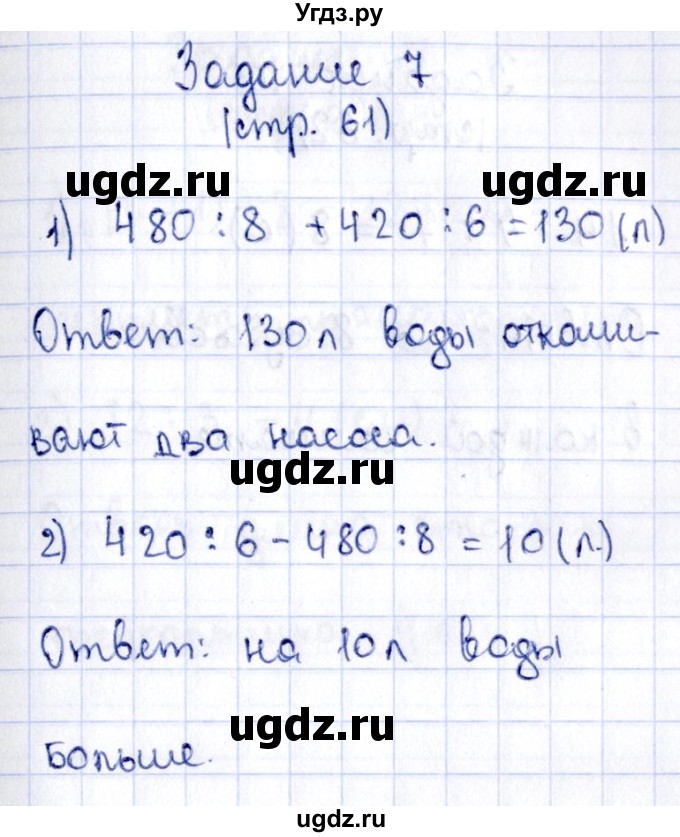 Угдз.ру
Задание 7
(стр. 61)
ugdz.ru ugdz.ru
1) 480 : 8 + 420 : 6 = 130 (л)
Ответ: 130 л воды откачи-
вают два насоса.
ugdz.ru
2) 420 : 6 - 480 : 8 = 10 (л.)
Ответ: на 10 л воды
ugdz.ru
больше.
ugdz.ru